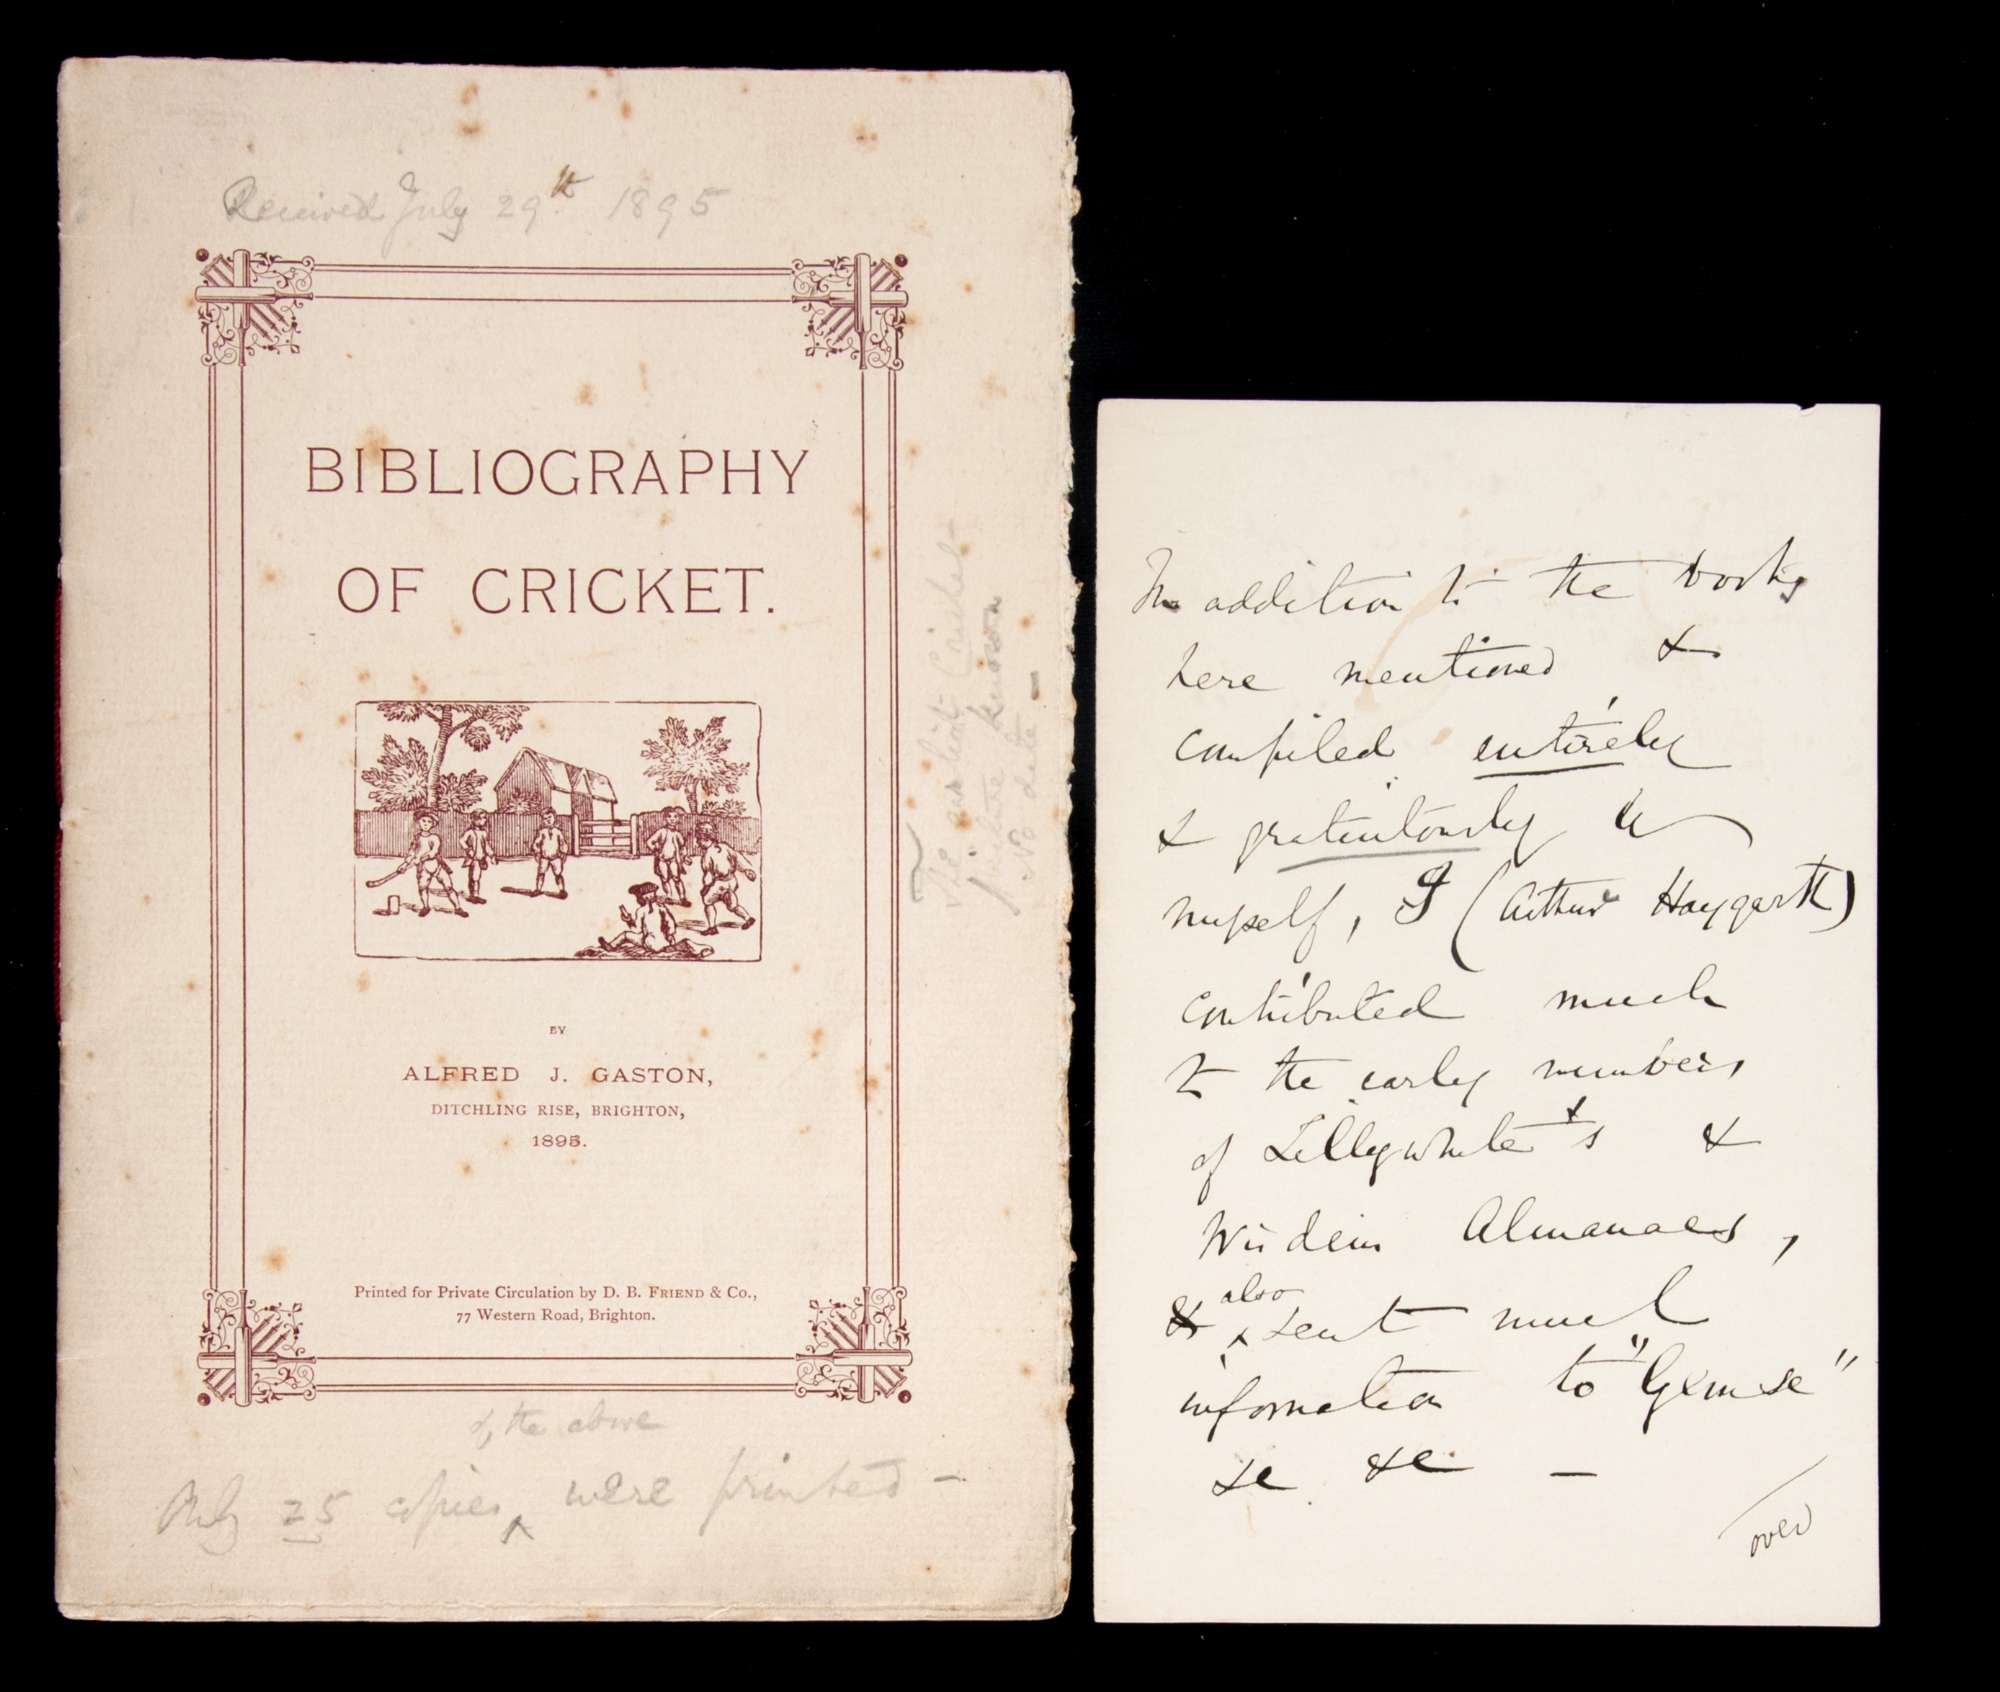 Received July 29th 1895
BIBLIOGRAPHY
OF CRICKET.
The earliest Cricket
picture known
No date –
BY
ALFRED J. GASTON,
DITCHLING RISE, BRIGHTON,
1895.
Printed for Private Circulation by D. B. FRIEND & Co.,
77 Western Road, Brighton.
of the above
Only 25 copies ^ were printed –
In addition to the books
here mentioned &
compiled entirely
& gratuitously by
myself, I (Arthur Haygarth)
contributed much
to the early numbers
of Lillywhite's &
Wisden Almanacs,
also
& ^ sent much
information to "Gemse"
&c &c –
over